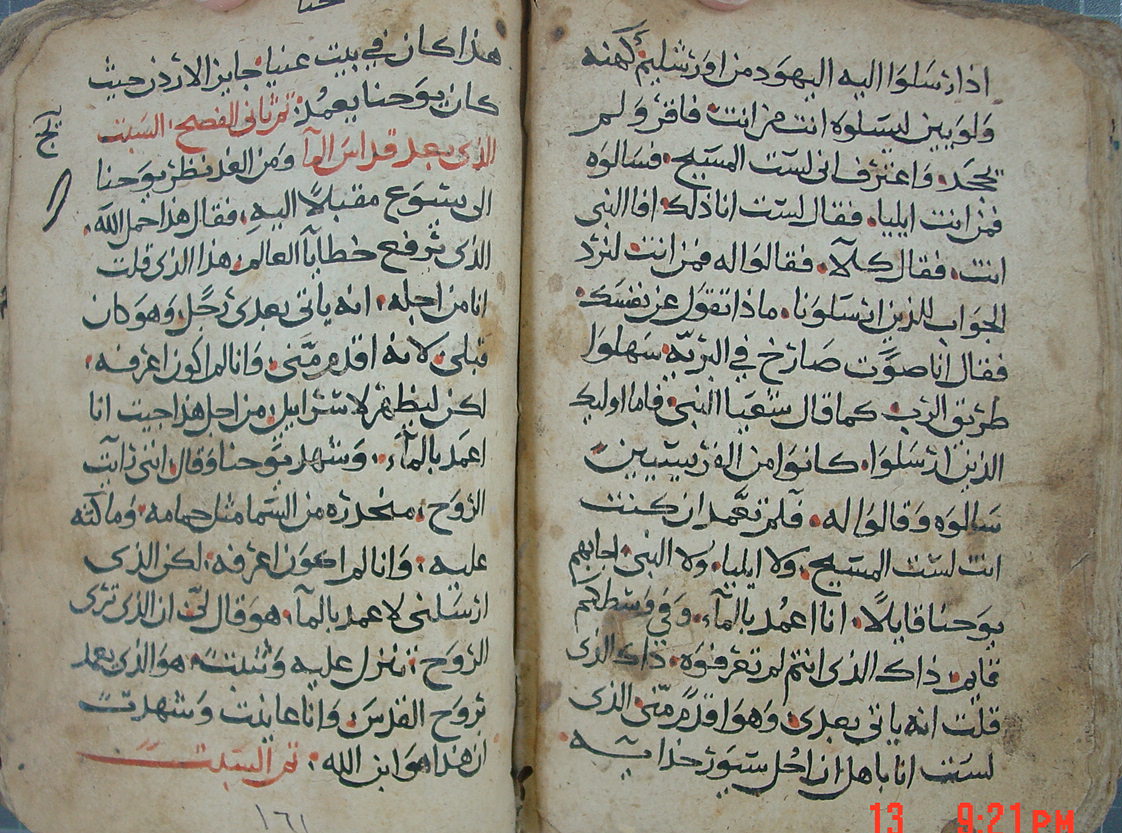 اذ ارسلوا اليه اليهود من اورشليم كهنه
ولويين ليسلوه انت من انت فاقر ولم
يجحد واعترف اني لست المسيح فسالوه
فمن انت ايليا فقال لست انا ذلك افاالنبي
انت فقال كلا فقالوا له فمن انت لنرد
الجواب للذين ارسلونا ماذا تقول عن نفسك
فقال انا صوت صارخ في البريه سهلوا
طريق الرب كما قال شعيا النبي فاما اوليك
الذين ارسلوا كانوا من الفريسيين
سالوه وقالوا له فلم تعمد ان كنت
انت لست المسيح ولا ايليا ولا النبي اجابهم
يوحنا قايلا انا اعمد بالماء وفي وسطكم
قايم ذاك الذي انتم لم تعرفوه ذاك الذي
قلت انه ياتي بعدي وهو اقدم مني الذي
لست انا باهل ان احل سيور حذايه
هذا كان في بيت عنيا جايز الاردن حيث
كان يوحنا يعمد تم ثاني الفصح السبت
الذي بعد قداس الما ومن الغد نظر يوحنا
الي يسوع مقبلا اليه فقال هذا حمل الله
الذي يرفع خطايا العالم هذا الذي قلت
انا من اجله انه ياتي بعدي رجل وهو كان
قبلي لانه اقدم مني وانا لم اكون اعرفه
لكن ليظهر لاسرائيل من اجل هذا جيت انا
اعمد بالماء وشهد يوحنا وقال انني رايت
الروح منحدره من السما مثل حمامه وماكثه
عليه وانا لم اكون اعرفه لكن الذي
ارسلني لاعمد بالما هو قال لي ان الذي تري
الروح تنزل عليه وتثبت هو الذي يعمد
بروح القدس وانا عاينت وشهدت
ان هذا هو ابن الله تم السبت
١٦١
13 9:21 PM